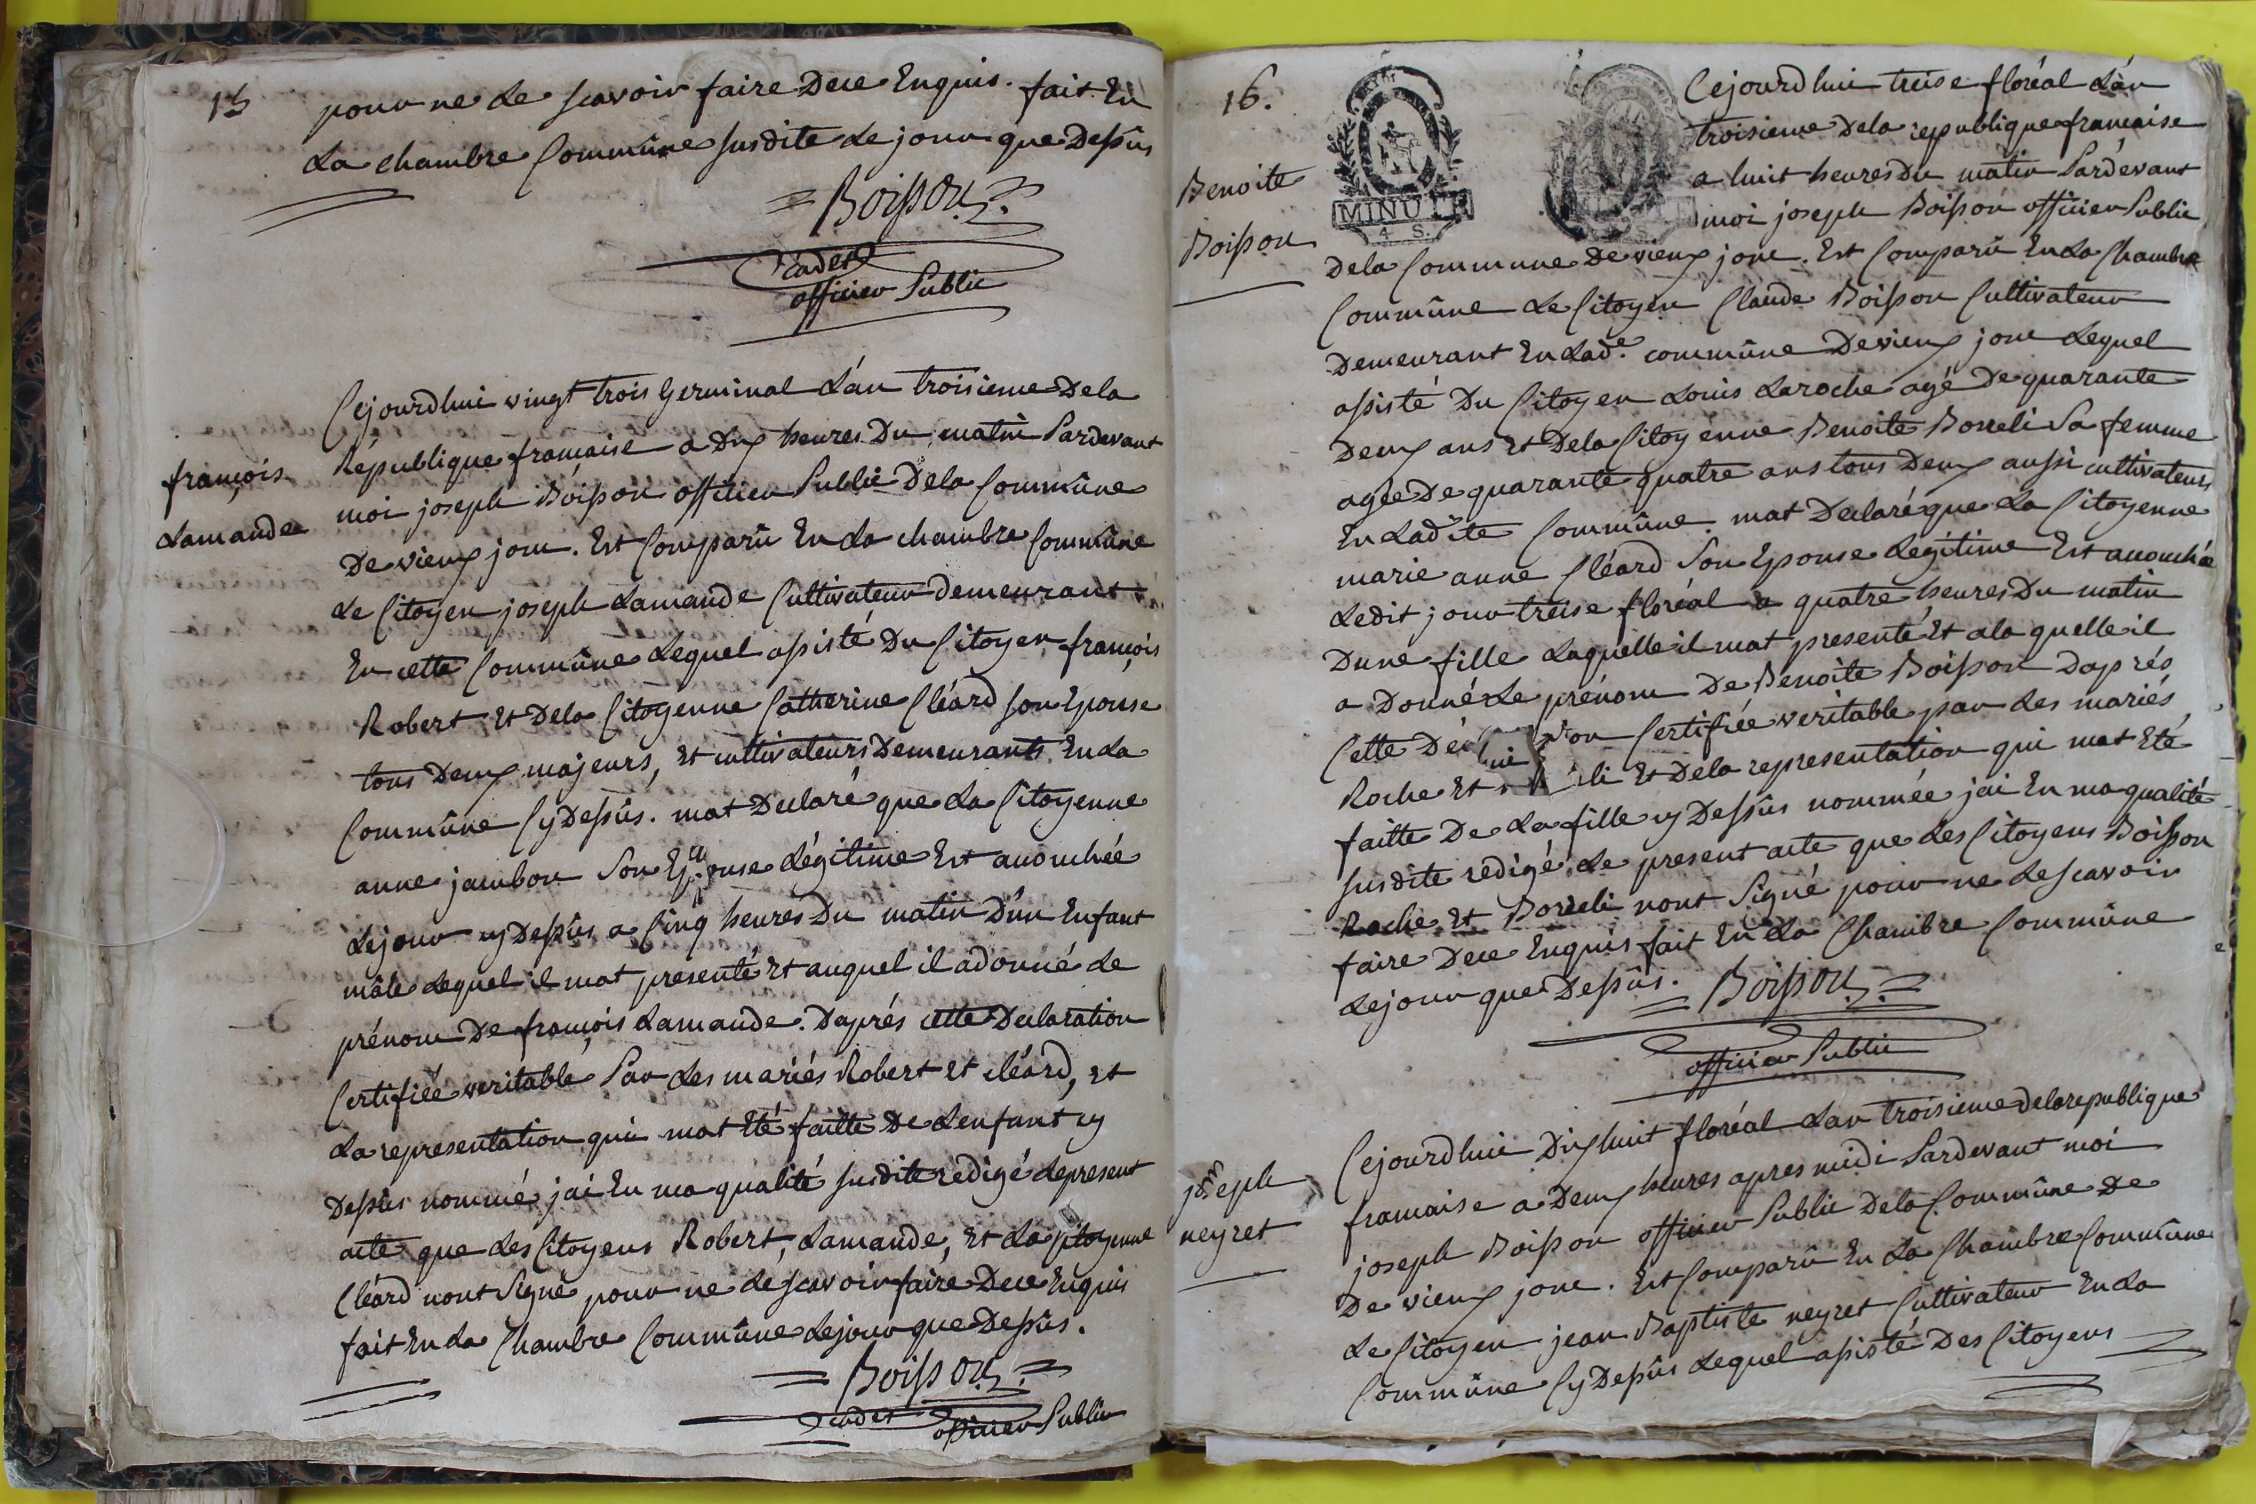 15
pour ne le scavoir faire Dece Enquis. fait En
La chambre Commûne susdite le jour que Dessûs
Boisson
cadet
officier Public
Cejourdhui vingt trois Germinal L'an troisieme Dela
République francaise a Dix heures Du matin Pardevant
françois
Lamande
moi joseph Boisson officier Public Dela Commûne
De vieux jour. Est Comparû En La chambre Commûne
Le Citoyen joseph Lamande Cultivateur Demeurant
En cette Commûne Lequel assisté Du Citoyen françois
Robert Et Dela Citoyenne Catherine Cléard son Epouse
tous Deux majeurs, Et cultivateurs Demeurants En La
Commûne Cy Dessûs. mat Declaré que La Citoyenne
anne jambon Son Epouse Légitime Est accouchée
Lejour cy Dessûs a Cinq heures Du matin D'un Enfant
mâle Lequel il mat presenté Et auquel il a donné Le
prénom De françois Lamande. D'aprés cette Declaration
Certifiée veritable Par Les mariés Robert Et cléard, Et
La representation qui mat Eté faitte De Lenfant cy
Dessûs nommé, jai En ma qualité susdite rédigé Le present
acte que Les Citoyens Robert, Lamande, Et La Citoyenne
Cléard nont Signé pour ne Le scavoir faire Dece Enquis
fait En La Chambre Commûne Lejour que Dessûs.
Boisson
cadet officier Public
16.
MINUTE
4 S.
Benoite
Boisson
Cejourdhui treise floréal L'an
troisieme Dela republique francaise
a huit heures Du matin Pardevant
moi joseph Boisson officier Public
Dela Commune De vieux joue. Est Comparû En La Chambre
Commûne Le Citoyen Claude Boisson Cultivateur
Demeurant En Lade. commûne De vieux joue Lequel
assisté Du Citoyen Louis Laroche agé De quarante
Deux ans Et Dela Citoyenne Benoite Borreli Sa femme
agée De quarante quatre ans tous Deux aussi cultivateurs
En Ladite Commûne. mat Declaré que La Citoyenne
marie anne Cléard Son Epouse Légitime Est accouchée
Ledit jour treise floréal a quatre heures Du matin
Dune fille Laquelle il mat presenté Et a la quelle il
a Donné Le prénom De Benoite Boisson Daprés
Cette Certifiée veritable par Les mariés
Roche Et Et Dela representation qui mat Eté
faitte De La fille cy Dessûs nommée jai En ma qualité
susdite redigé Le present acte que Les Citoyens Boisson
Roche Et Borreli nont Signé pour ne Le scavoir
faire Dece Enquis fait En La Chambre Commûne
Lejour que Dessûs.
Boisson
officier Public
joseph
neyret
Cejourdhui Dix huit floréal Lan troisieme dela republique
francaise a Deux heures apres midi Pardevant moi
joseph Boisson officier Public Dela Commûne De
De vieux joue. Est Comparû En La Chambre Commûne
Le Citoyen jean Baptiste neyret Cultivateur En La
Commûne Cy Dessûs Lequel assisté Des Citoyens